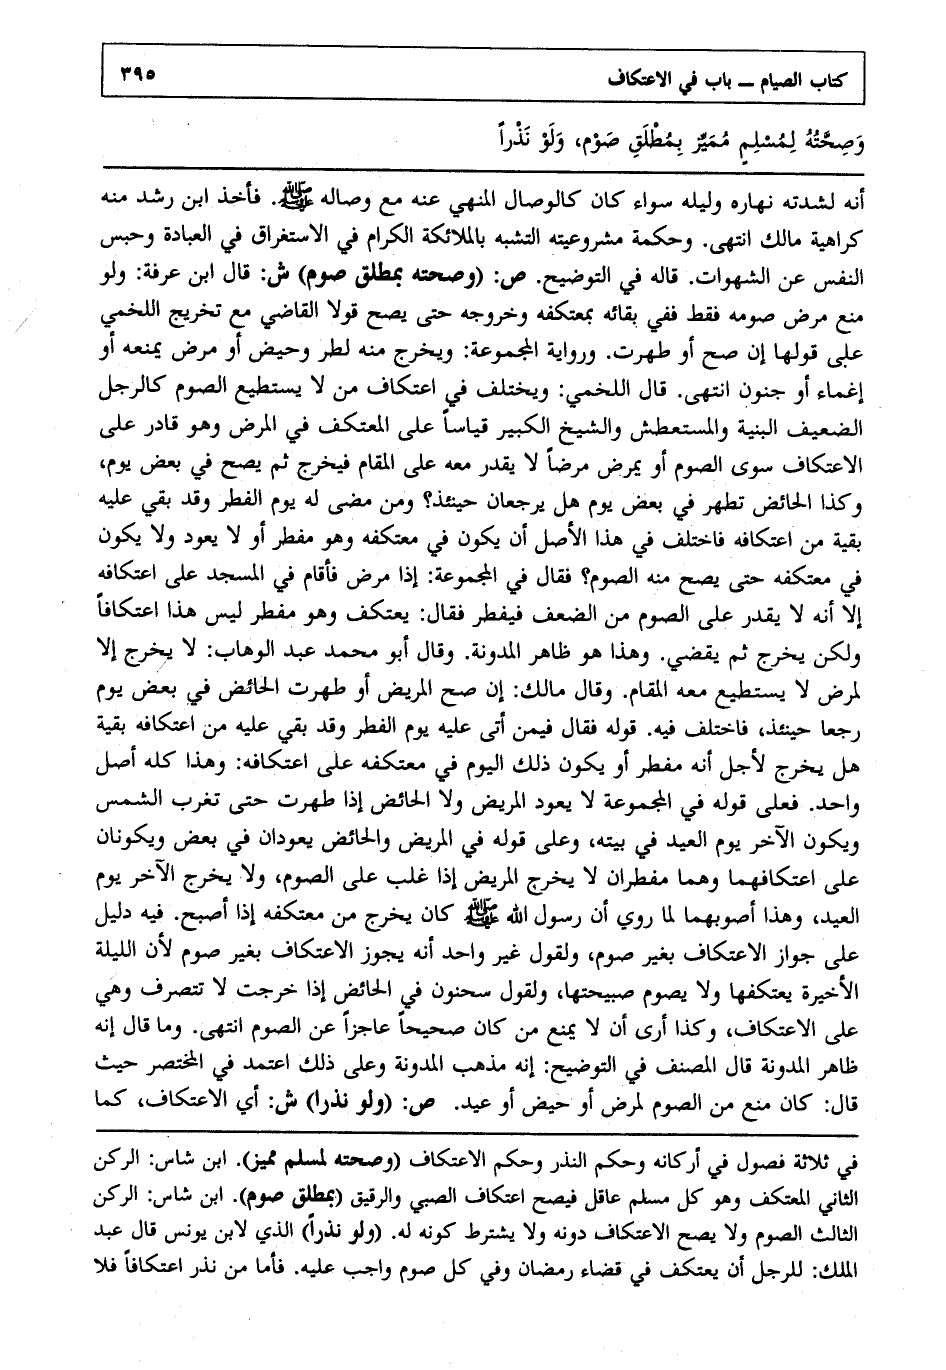 كتاب الصيام ــ باب في الاعتكاف ٣٩٥
وَصِحَّتُهُ لِمُسْلِمٍ مُمَيِّزٍ بِمُطْلَقِ صَوْمٍ، وَلَوْ نَذْراً
أنه لشدته نهاره وليله سواء كان كالوصال المنهي عنه مع وصاله ﷺ. فأخذ ابن رشد منه
كراهية مالك انتهى. وحكمة مشروعيته التشبه بالملائكة الكرام في الاستغراق في العبادة وحبس
النفس عن الشهوات. قاله في التوضيح. ص: (وصحته بمطلق صوم) ش: قال ابن عرفة: ولو
منع مرض صومه فقط ففي بقائه بمعتكفه وخروجه حتى يصح قولا القاضي مع تخريج اللخمي
على قولها إن صح أو طهرت. ورواية المجموعة: ويخرج منه لطر وحيض أو مرض يمنعه أو
إغماء أو جنون انتهى. قال اللخمي: ويختلف في اعتكاف من لا يستطيع الصوم كالرجل
الضعيف البنية والمستعطش والشيخ الكبير قياساً على المعتكف في المرض وهو قادر على
الاعتكاف سوى الصوم أو يمرض مرضاً لا يقدر معه على المقام فيخرج ثم يصح في بعض يوم،
وكذا الحائض تطهر في بعض يوم هل يرجعان حينئذ؟ ومن مضى له يوم الفطر وقد بقي عليه
بقية من اعتكافه فاختلف في هذا الأصل أن يكون في معتكفه وهو مفطر أو لا يعود ولا يكون
في معتكفه حتى يصح منه الصوم؟ فقال في المجموعة: إذا مرض فأقام في المسجد على اعتكافه
إلا أنه لا يقدر على الصوم من الضعف فيفطر فقال: يعتكف وهو مفطر ليس هذا اعتكافاً
ولكن يخرج ثم يقضي. وهذا هو ظاهر المدونة. وقال أبو محمد عبد الوهاب: لا يخرج إلا
لمرض لا يستطيع معه المقام. وقال مالك: إن صح المريض أو طهرت الحائض في بعض يوم
رجعا حينئذ، فاختلف فيه. قوله فقال فيمن أتى عليه يوم الفطر وقد بقي عليه من اعتكافه بقية
هل يخرج لأجل أنه مفطر أو يكون ذلك اليوم في معتكفه على اعتكافه: وهذا كله أصل
واحد. فعلى قوله في المجموعة لا يعود المريض ولا الحائض إذا طهرت حتى تغرب الشمس
ويكون الآخر يوم العيد في بيته، وعلى قوله في المريض والحائض يعودان في بعض ويكونان
على اعتكافهما وهما مفطران لا يخرج المريض إذا غلب على الصوم، ولا يخرج الآخر يوم
العيد، وهذا أصوبهما لما روي أن رسول الله ﷺ كان يخرج من معتكفه إذا أصبح. فيه دليل
على جواز الاعتكاف بغير صوم، ولقول غير واحد أنه يجوز الاعتكاف بغير صوم لأن الليلة
الأخيرة يعتكفها ولا يصوم صبيحتها، ولقول سحنون في الحائض إذا خرجت لا تتصرف وهي
على الاعتكاف، وكذا أرى أن لا يمنع من كان صحيحاً عاجزاً عن الصوم انتهى. وما قال إنه
ظاهر المدونة قال المصنف في التوضيح: إنه مذهب المدونة وعلى ذلك اعتمد في المختصر حيث
قال: كان منع من الصوم لمرض أو حيض أو عيد. ص: (ولو نذرا) ش: أي الاعتكاف، كما
في ثلاثة فصول في أركانه وحكم النذر وحكم الاعتكاف (وصحته لمسلم مميز). ابن شاس: الركن
الثاني المعتكف وهو كل مسلم عاقل فيصح اعتكاف الصبي والرقيق (بمطلق صوم). ابن شاس: الركن
الثالث الصوم ولا يصح الاعتكاف دونه ولا يشترط كونه له. (ولو نذراً) الذي لابن يونس قال عبد
الملك: للرجل أن يعتكف في قضاء رمضان وفي كل صوم واجب عليه. فأما من نذر اعتكافاً فلا